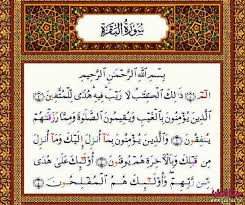 سُورَةُ الْبَقَرَةِ
بِسْمِ ٱللَّهِ ٱلرَّحْمَٰنِ ٱلرَّحِيمِ
الٓمٓ ذَٰلِكَ ٱلْكِتَٰبُ لَا رَيْبَ فِيهِ هُدًى لِّلْمُتَّقِينَ
ٱلَّذِينَ يُؤْمِنُونَ بِٱلْغَيْبِ وَيُقِيمُونَ ٱلصَّلَوٰةَ وَمِمَّا رَزَقْنَٰهُمْ
يُنفِقُونَ وَٱلَّذِينَ يُؤْمِنُونَ بِمَآ أُنزِلَ إِلَيْكَ وَمَآ أُنزِلَ
مِن قَبْلِكَ وَبِٱلْءَاخِرَةِ هُمْ يُوقِنُونَ أُو۟لَٰٓئِكَ عَلَىٰ هُدًى
مِّن رَّبِّهِمْ وَأُو۟لَٰٓئِكَ هُمُ ٱلْمُفْلِحُونَ